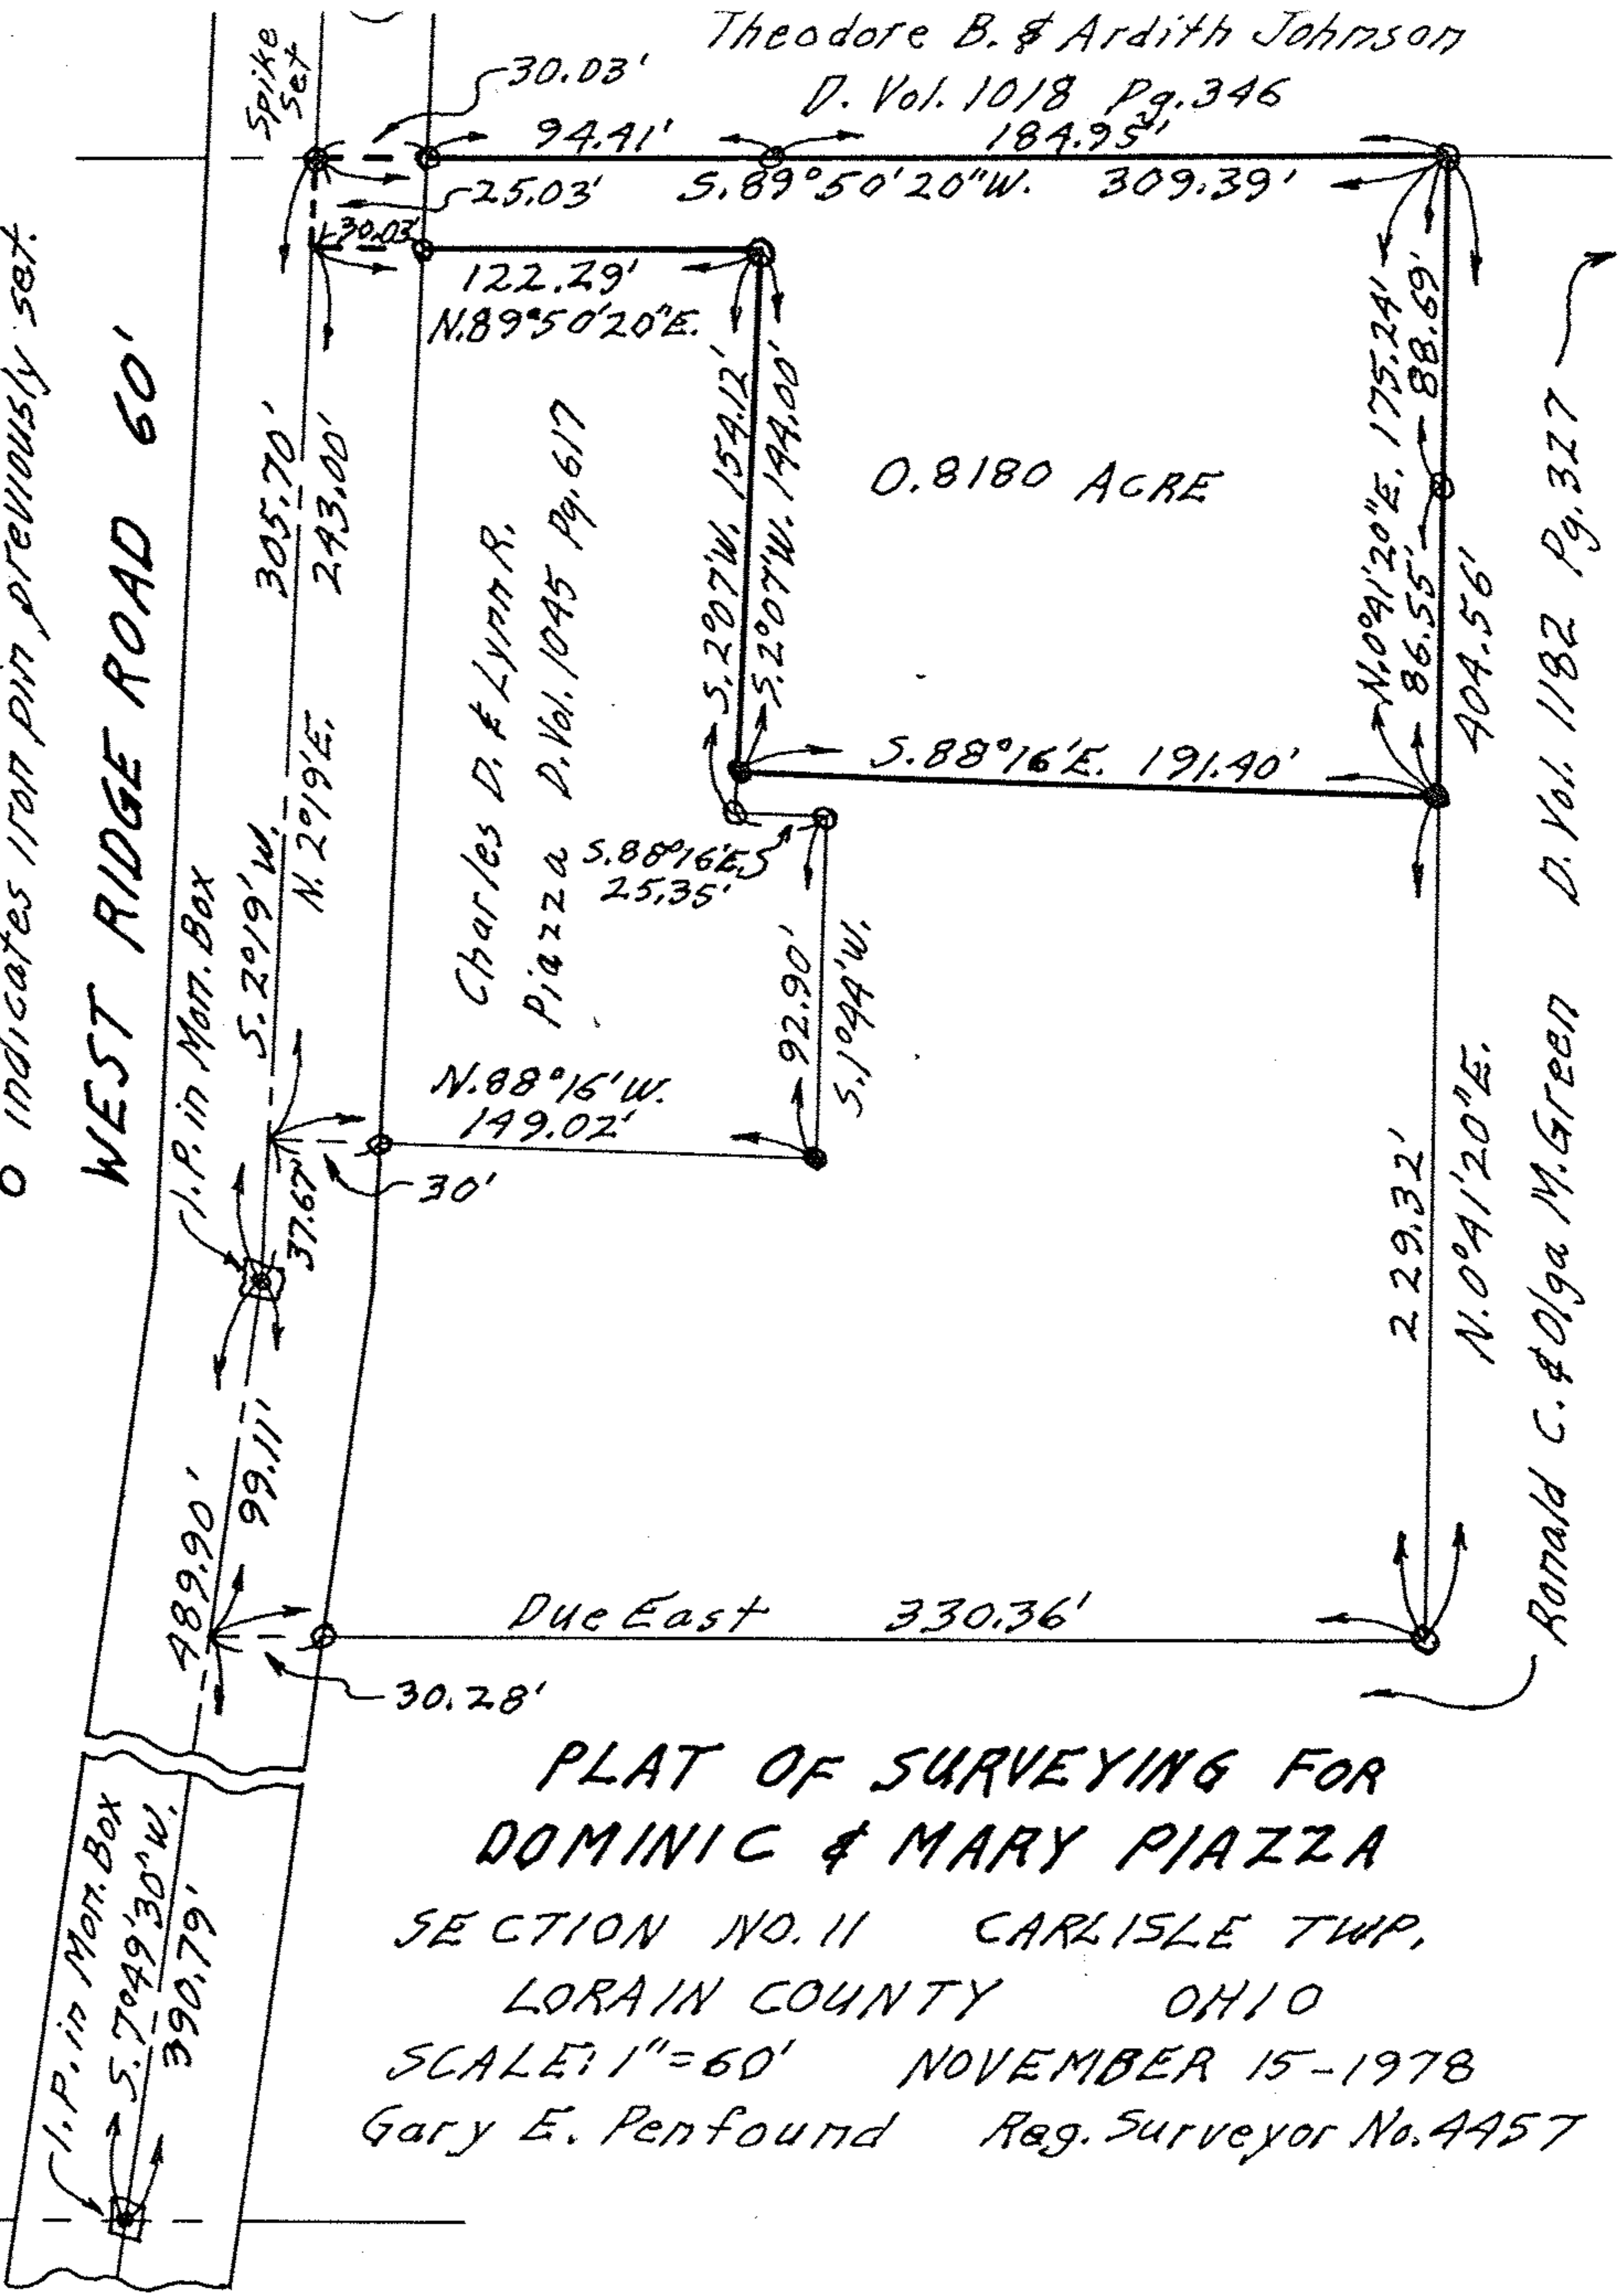 Theodore B. & Ardith Johnson
D. Vol. 1018 Pg. 346
Spike
Set
30.03'
94.41'
184.95'
S. 89°50'20"W. 309.39'
25.03'
30.03'
122.29'
N.89°50'20"E.
O indicates iron pin previously set.
WEST RIDGE ROAD 60'
305.70'
243.00'
S. 2°19'W.
N. 2°19'E.
I.P. in Mon. Box
Charles D. & Lynn R.
Piazza D. Vol. 1045 Pg. 617
S. 2°07'W. 154.12'
S. 2°07'W. 144.00'
0.8180 ACRE
N.0°41'20"E. 175.24'
88.69'
86.55'
404.56'
S. 88°16'E. 191.40'
S.88°16'E.
25.35'
92.90'
S. 1°44'W.
N.88°16'W.
149.02'
30'
37.67'
229.32'
N. 0°41'20"E.
Ronald C. & Olga M. Green D. Vol. 1182 Pg. 327
489.90'
99.11'
Due East 330.36'
30.28'
I.P. in Mon. Box
S. 7°49'30"W.
390.79'
PLAT OF SURVEYING FOR
DOMINIC & MARY PIAZZA
SECTION NO. 11 CARLISLE TWP.
LORAIN COUNTY OHIO
SCALE: 1"=60' NOVEMBER 15-1978
Gary E. Penfound Reg. Surveyor No. 4457